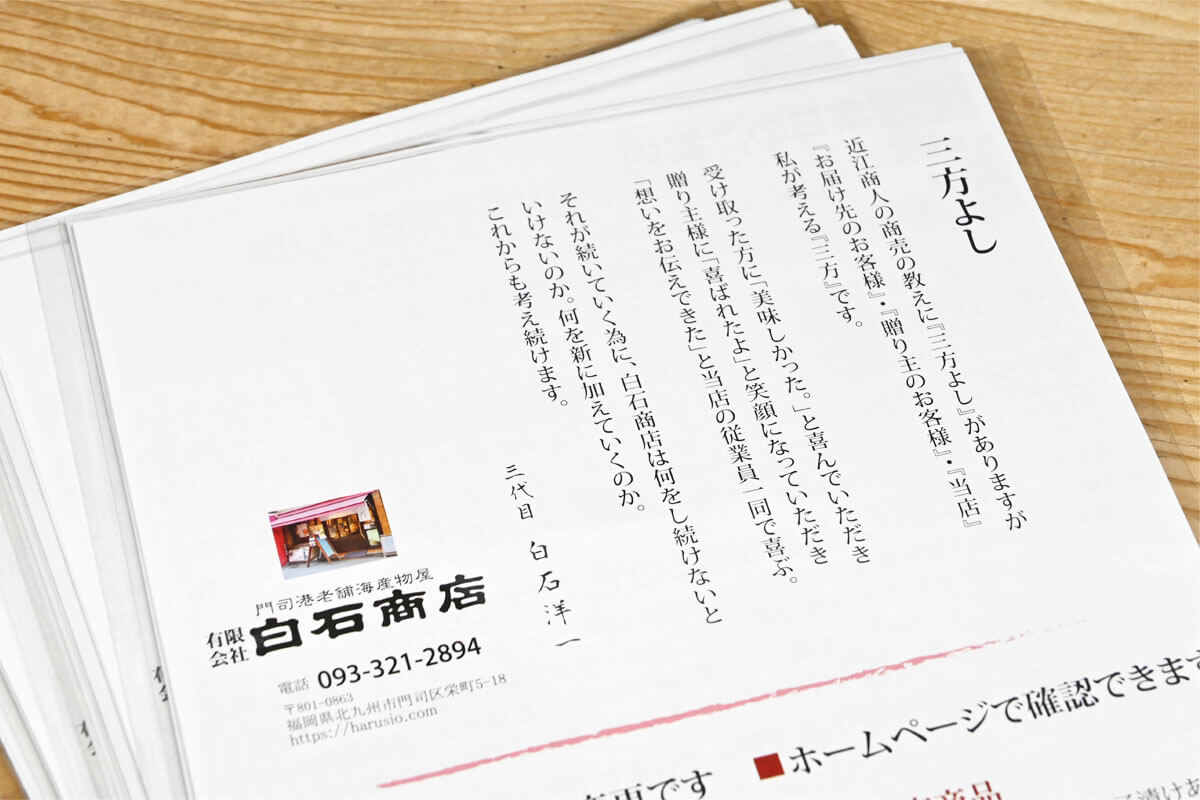 三方よし
近江商人の商売の教えに『三方よし』がありますが
『お届け先のお客様』・『贈り主のお客様』・『当店』
私が考える『三方』です。
受け取った方に「美味しかった。」と喜んでいただき
贈り主様に「喜ばれたよ」と笑顔になっていただき
「想いをお伝えできた」と当店の従業員一同で喜ぶ。
それが続いていく為に、白石商店は何をし続けないと
いけないのか。何を新に加えていくのか。
これからも考え続けます。
三代目 白石洋一
門司港老舗海産物屋
有限会社 白石商店
電話 093-321-2894
〒801-0863
福岡県北九州市門司区栄町5-18
https://harusio.com
■ホームページで確認できます
更です
商品
て漬けあ